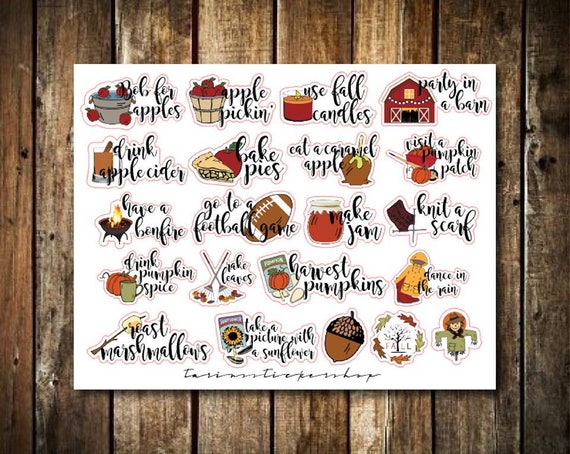 Bob for
apples
apple
pickin'
use fall
candles
party in
a barn
drink
apple cider
bake
pies
eat a caramel
apple
visit a
pumpkin
patch
have a
bonfire
go to a
football game
make
jam
knit a
scarf
drink
pumpkin
spice
rake
leaves
PUMPKIN
harvest
pumpkins
dance in
the rain
roast
marshmallows
SUNFLOWER
take a
picture with
a sunflower
FALL
tasinsstickersshop